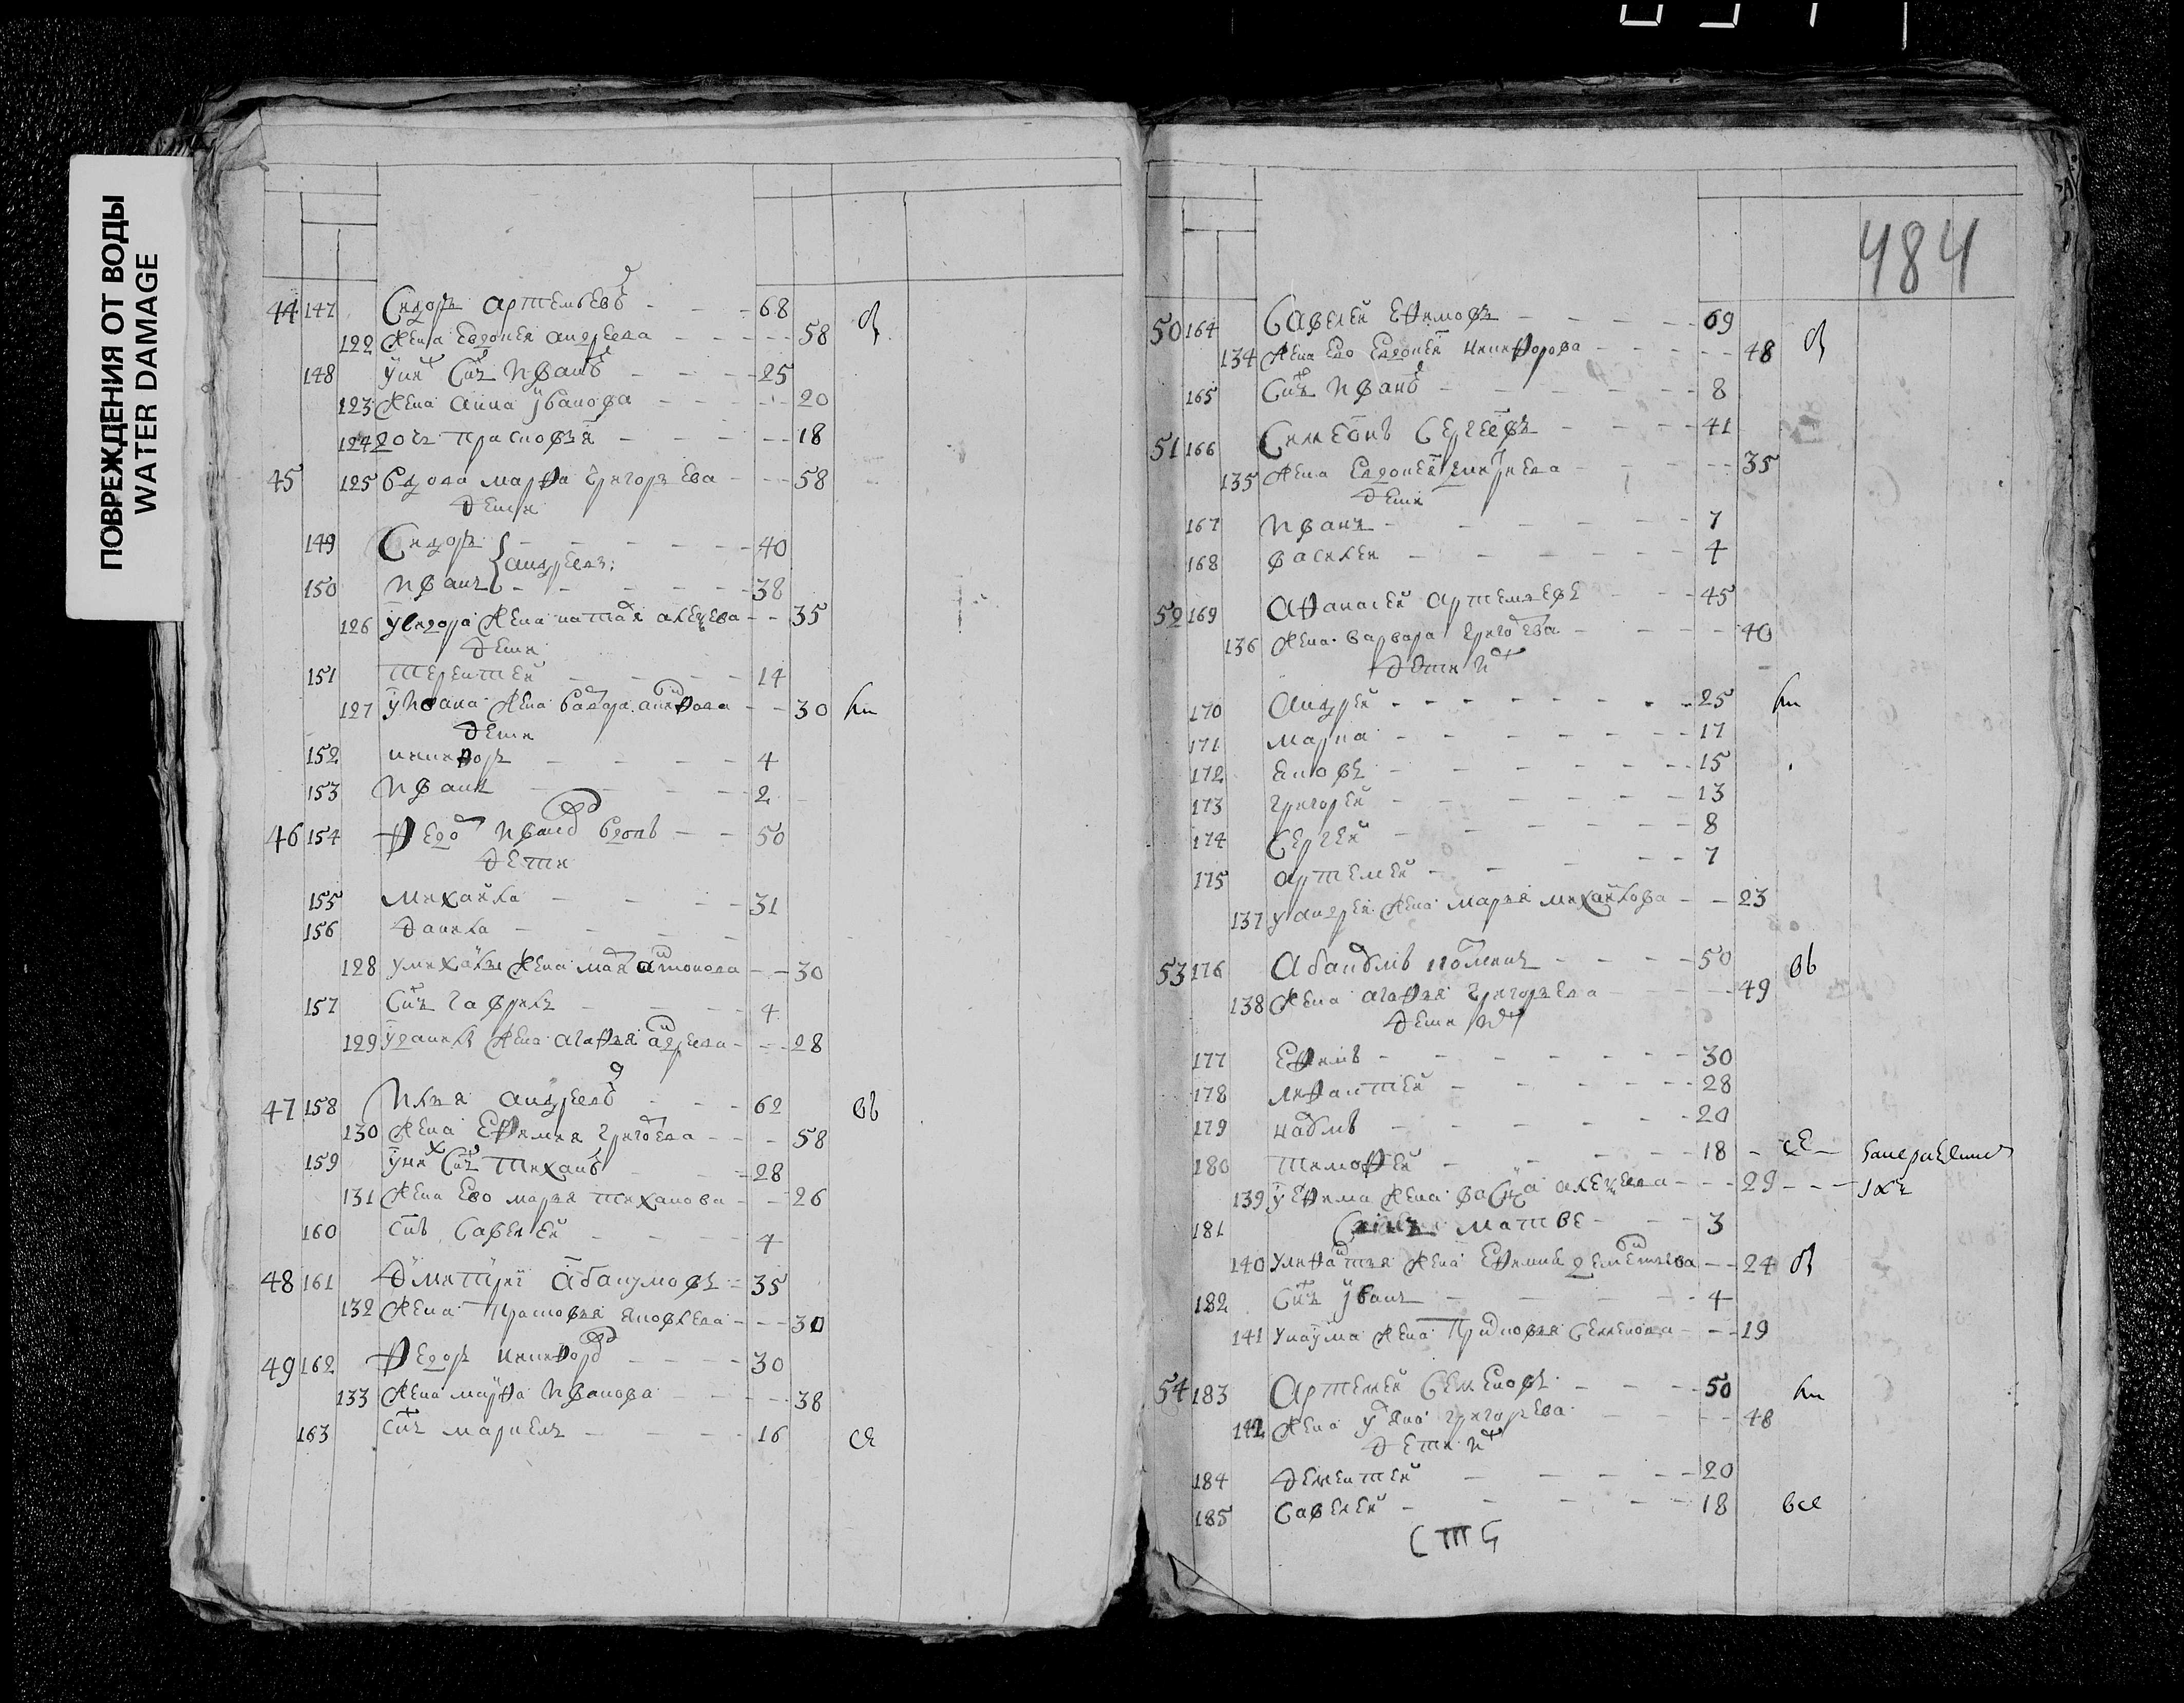 ПОВРЕЖДЕНИЯ ОТ ВОДЫ
WATER DAMAGE
44 147 Сидоръ Артемьевъ 68
122 жена Евдокея Андреева 58
148 у них сынъ Иванъ 25
123 жена Анна Иванова 20
124 дочь Прасковья 18
45 125 вдова Марфа Григорьева 58
дети
149 Сидоръ 40
Андреевы
150 Иванъ 38
126 у Сидора жена Наталья Алексеева 35
дети
151 Терентей 14
127 у Ивана жена Варвара 30
дети
152 Никифоръ 4
153 Иванъ 2
46 154 Федор Иванов вдовъ 50
дети
155 Михайла 31
156 Данила
128 у Михайлы жена Марья Антонова 30
157 сынъ Гаврила 4
129 у Данилы жена Агафья Андреева 28
47 158 Илья Андреевъ 62
130 жена Ефимия Григорьева 58
159 у них сынъ Тиханъ 28
131 жена ево Марья Тиханова 26
160 сынъ Савелей 4
48 161 Дмитреї Абакумовъ 35
132 жена Прасковья Яковлева 30
49 162 Федоръ Никифоров 30
133 жена Марфа Иванова 38
163 сынъ Маркелъ 16
484
50 164 Савелей Ефимовъ 69
134 жена ево Евдокея Никифорова 48
165 сынъ Иванъ 8
51 166 Симеонъ Сергеевъ 41
135 жена Евдокея 35
дети
167 Иванъ 7
168 Василей 4
52 169 Афанасей Артемьевъ 45
136 жена Варвара Григорьева 40
дети их
170 Андрей 25
171 Марка 17
172 Яковъ 15
173 Григорей 13
174 Сергей 8
175 Артемей 7
137 у Андрея жена Марья Михайлова 23
53 176 Абакумъ 50
138 жена Агафья Григорьева 49
дети их
177 Ефимъ 30
178 28
179 Наумъ 20
180 Тимофей 18
139 у Ефима жена Алексеева 29
181 сынъ Матве 3
140 жена Ефимия 24
182 сынъ Иванъ 4
141 у Наума жена Прасковья Семенова 19
54 183 Артемей Семеновъ 50
142 жена Ульяна Григорьева 48
дети их
184 Дементей 20
185 Савелей 18